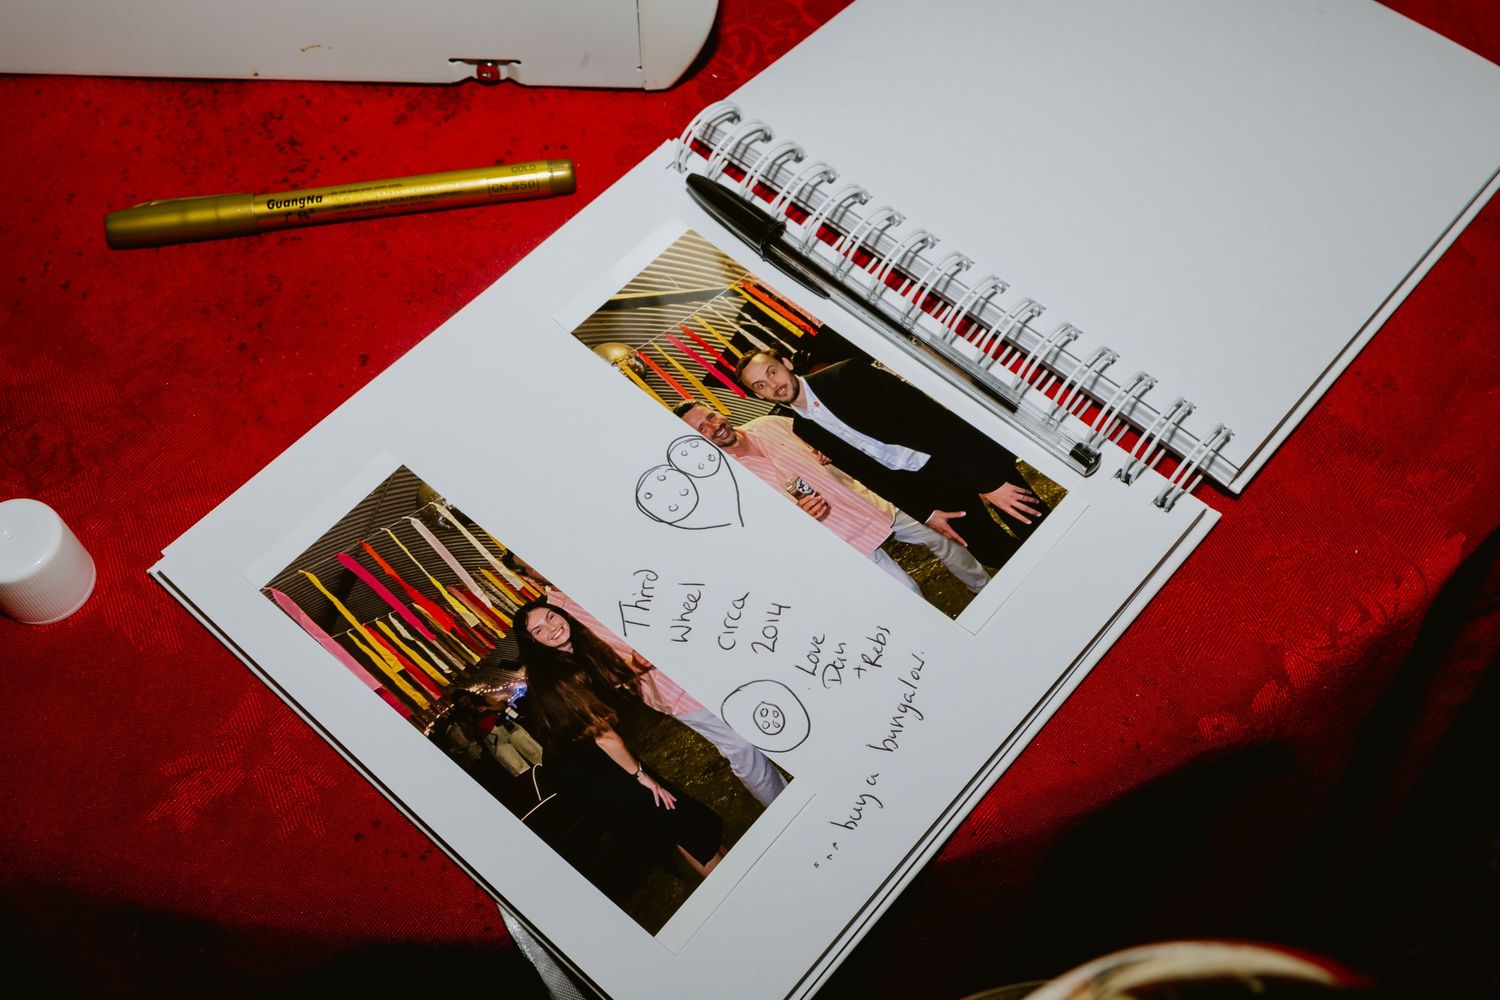 GuangNa
GOLD
GN.550
Third
Wheel
circa
2014
. Love
Dan
+ Rebs
... buy a bungalow.